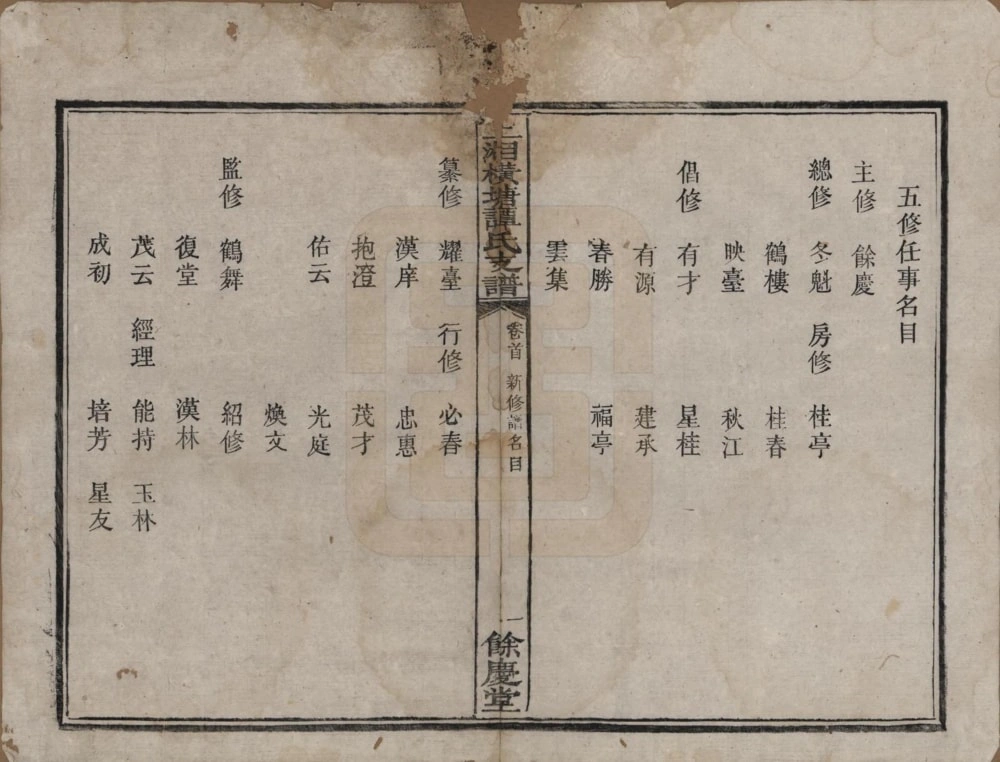 五修任事名目
主修 餘慶
總修 冬魁 房修 桂亭
鶴樓 桂春
映臺 秋江
倡修 有才 星桂
有源 建承
春勝 福亭
雲集
上湘橫塘譚氏支譜 卷首 新修譜名目 一 餘慶堂
纂修 耀臺 行修 必春
漢庠 忠惠
抱澄 茂才
佑云 光庭
煥文
監修 鶴舞 紹修
復堂 漢林
茂云 經理 能持 玉林
成初 培芳 星友